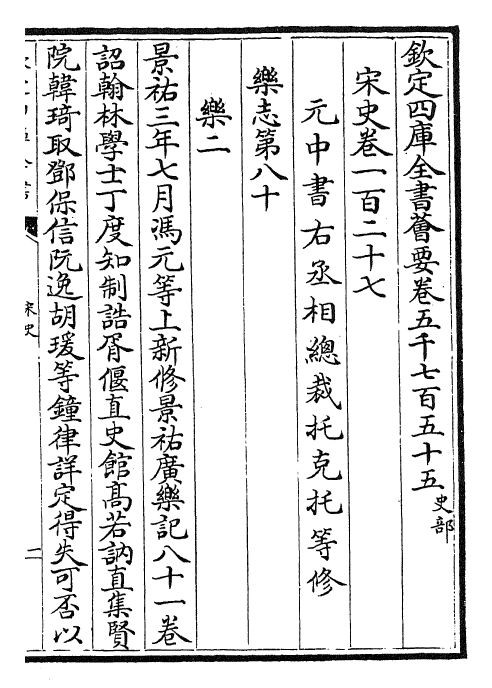 欽定四庫全書薈要卷五千七百五十五史部
宋史卷一百二十七
元中書右丞相總裁托克托等修
樂志第八十
樂二
景祐三年七月馮元等上新修景祐廣樂記八十一卷
詔翰林學士丁度知制誥胥偃直史館高若訥直集賢
院韓琦取鄧保信阮逸胡瑗等鐘律詳定得失可否以
宋史